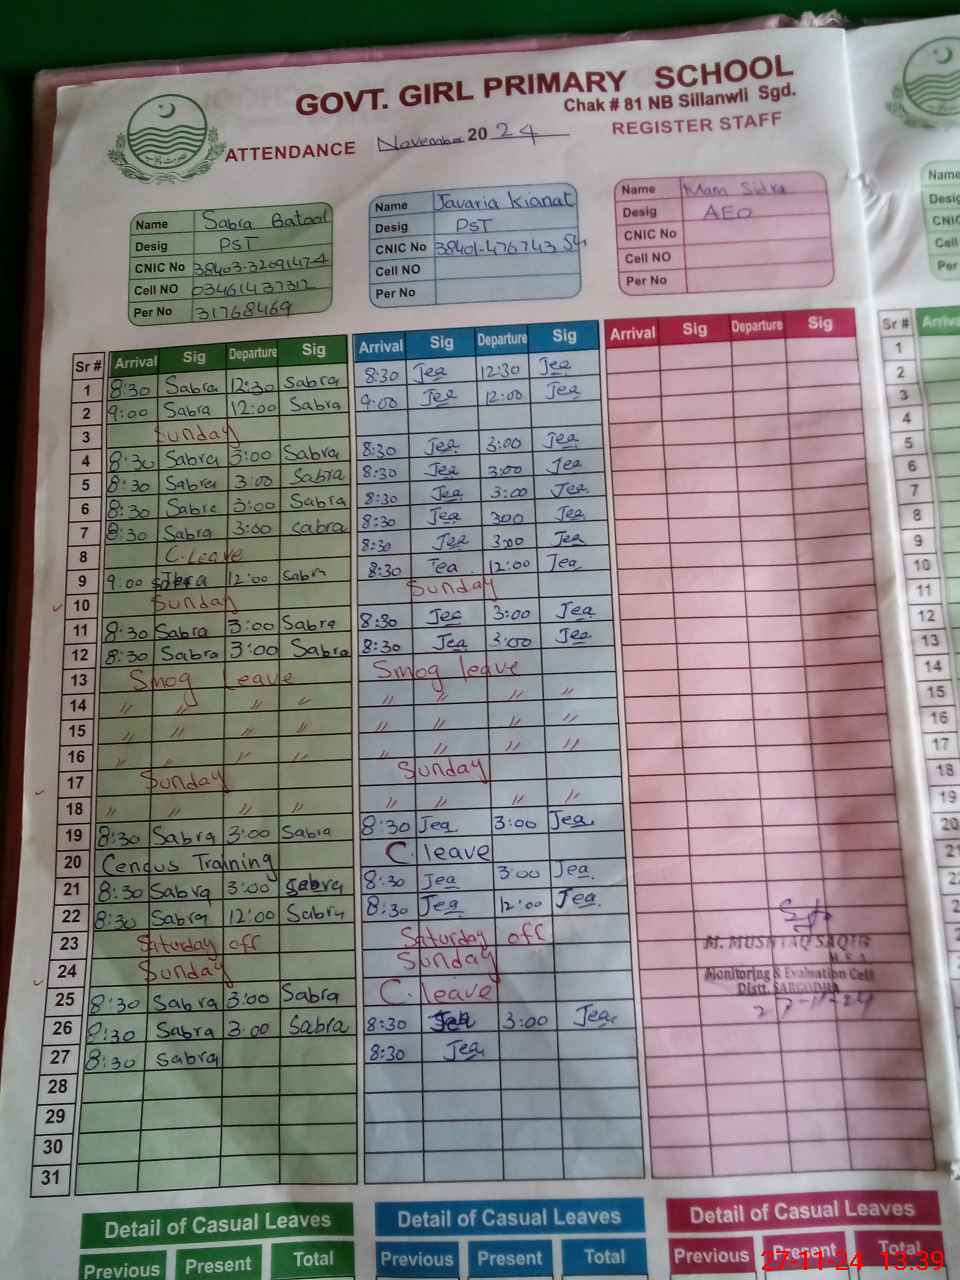 GOVT. GIRL PRIMARY SCHOOL
Chak # 81 NB Sillanwli Sgd.
ATTENDANCE November 2024 REGISTER STAFF
Name Sabra Batool
Desig PST
CNIC No 38403-3209147-4
Cell NO 03461437312
Per No 31768469
Name Javaria Kianat
Desig PST
CNIC No 38401-476743 54
Cell NO
Per No
Name Mam Sidra
Desig AEO
CNIC No
Cell NO
Per No
Name
Desig
CNIC
Cell
Per
Sr # Arrival Sig Departure Sig Arrival Sig Departure Sig Arrival Sig Departure Sig Sr # Arriva
1 8:30 Sabra 12:30 Sabra 8:30 Jea 12:30 Jea 1
2 9:00 Sabra 12:00 Sabra 9:00 Jea 12:00 Jea 2
3 Sunday 3
4 8:30 Sabra 3:00 Sabra 8:30 Jea 3:00 Jea 4
5 8:30 Sabra 3:00 Sabra 8:30 Jea 3:00 Jea 5
6 8:30 Sabra 3:00 Sabra 8:30 Jea 3:00 Jea 6
7 8:30 Sabra 3:00 Sabra 8:30 Jea 300 Jea 7
8 C.Leave 8:30 Jea 3:00 Jea 8
9 9:00 12:00 Sabra 8:30 Jea 12:00 Jea 9
10 Sunday Sunday 10
11 8:30 Sabra 3:00 Sabra 8:30 Jea 3:00 Jea 11
12 8:30 Sabra 3:00 Sabra 8:30 Jea 3:00 Jea 12
13 Smog Leave Smog leave 13
14 〃 〃 〃 〃 〃 〃 〃 〃 14
15 〃 〃 〃 〃 〃 〃 〃 15
16 〃 〃 〃 〃 〃 〃 〃 〃 16
17 Sunday Sunday 17
18 〃 〃 〃 〃 〃 〃 〃 〃 18
19 8:30 Sabra 3:00 Sabra 8:30 Jea 3:00 Jea 19
20 Cencus Training C.leave 20
21 8:30 Sabra 3:00 Sabra 8:30 Jea 3:00 Jea. 21
22 8:30 Sabra 12:00 Sabra 8:30 Jea 12:00 Jea.
23 Saturday off Saturday off
24 Sunday Sunday
25 8:30 Sabra 3:00 Sabra C.leave
26 8:30 Sabra 3:00 Sabra 8:30 Jea 3:00 Jea.
27 8:30 Sabra 8:30 Jea
28
29
30
31
M. MUSHTAQ SAQIB
Monitoring & Evaluation Cell
Distt. SARGODHA
27-11-24
Detail of Casual Leaves Detail of Casual Leaves Detail of Casual Leaves
Previous Present Total Previous Present Total Previous Present Total
27-11-24 13:39